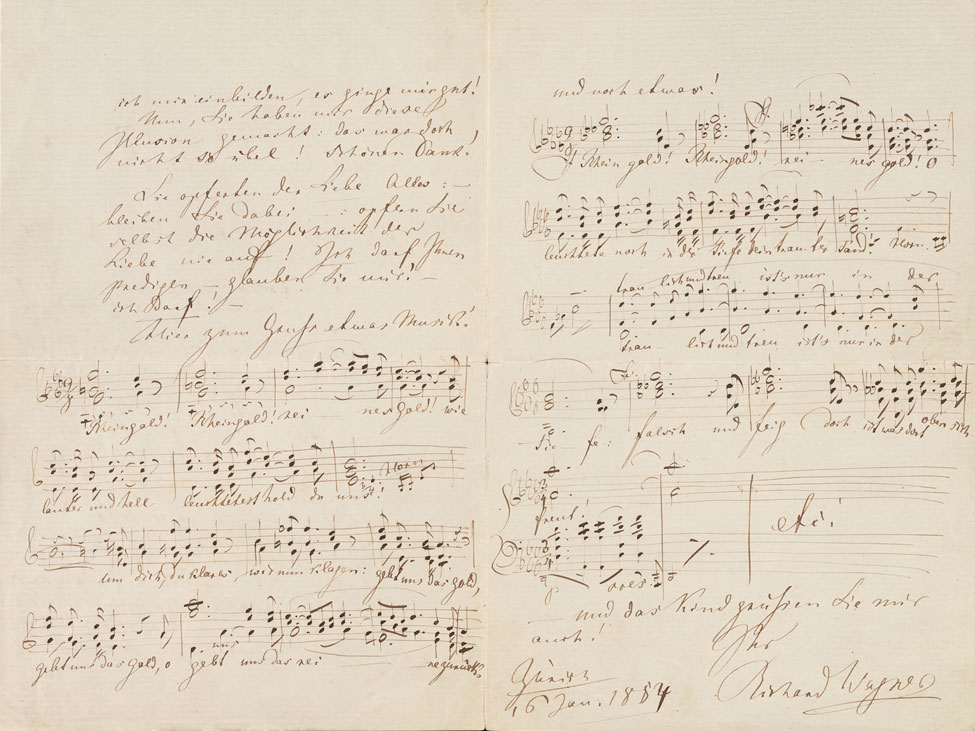 ich mir einbilden, es ginge mir gut!
Nun, Sie haben mir diese
Illusion gemacht: das war doch
nicht so übel! Schönen Dank!
Sie opferten der Liebe Alles: —
bleiben Sie dabei — : opfern Sie
selbst die Möglichkeit der
Liebe nie auf! Ich darf Ihnen
predigen — glauben Sie mir! —
ich darf! —
Hier zum Gruss etwas Musik!
Rheingold! Rheingold! rei nes gold! wie
lauter und hell leuchtetest hold du uns! Horn
um dich, du klares, wir nun klagen: gebt uns das gold,
uns
gebt uns das gold, o gebt uns das rei ne zurück!
und noch etwas!
Rheingold! Rheingold! rei nes gold! O
leuchtete noch in der Tiefe dein laut'rer Tand! Horn.
trau lich und treu ist's nur in der
trau lich und treu ist's nur in der
Tie fe: falsch und feig doch ist was dort oben sich
freut!
p
etc.
— und das Kind grüssen Sie mir
auch!
Ihr
Zürich Richard Wagner
16 Jan. 1854